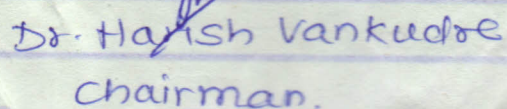 Dr. Harish Vankudre
Chairman.